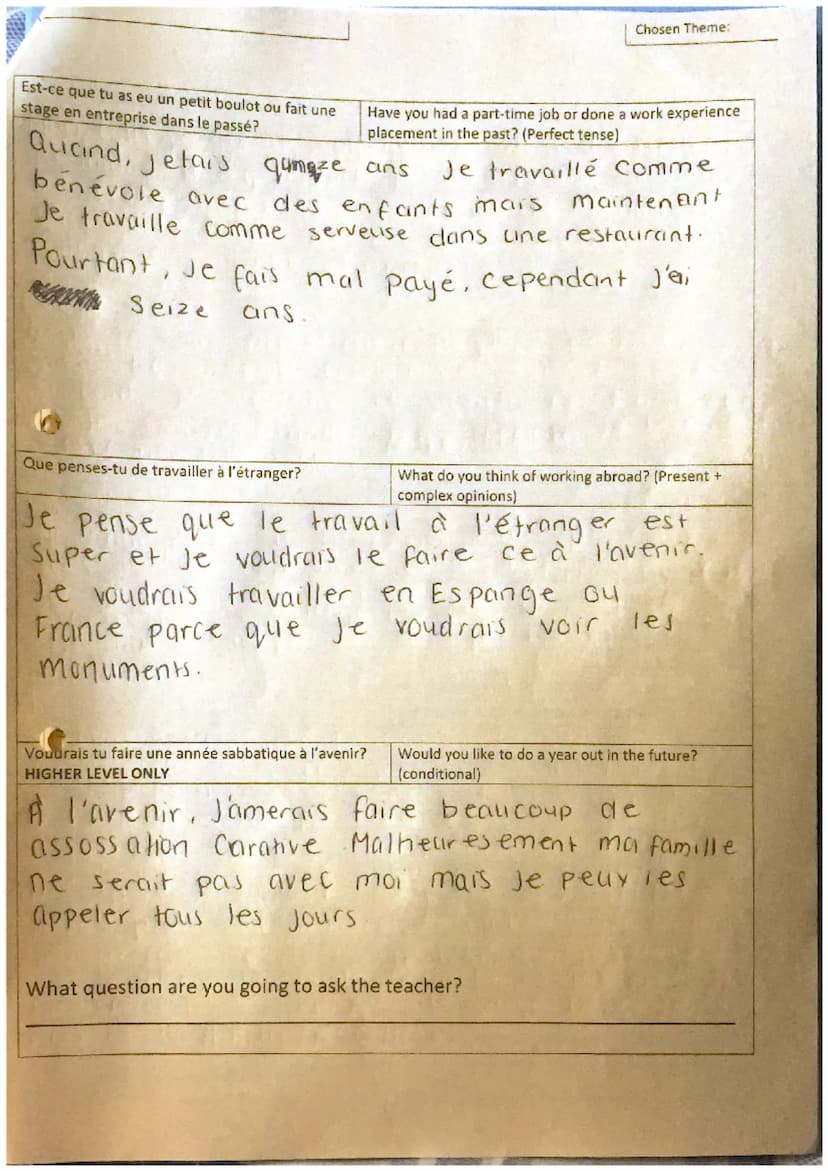 Chosen Theme:
Est-ce que tu as eu un petit boulot ou fait une
stage en entreprise dans le passé?
Have you had a part-time job or done a work experience
placement in the past? (Perfect tense)
Quand, jetais qunqze ans Je travaillé comme
bénévole avec des enfants mais maintenant
Je travaille comme serveuse dans une restaurant.
Pourtant, Je fais mal payé, cependant J'ai
Seize ans.
Que penses-tu de travailler à l'étranger?
What do you think of working abroad? (Present +
complex opinions)
Je pense que le travail à l'étranger est
Super et Je voudrais le faire ce à l'avenir.
Je voudrais travailler en Espange ou
France parce que Je voudrais voir les
Monuments.
Voudrais tu faire une année sabbatique à l'avenir?
HIGHER LEVEL ONLY
Would you like to do a year out in the future?
(conditional)
À l'avenir, J'amerais faire beaucoup de
assossation Carative Malheuresement ma famille
ne serait pas avec moi mais Je peux les
appeler tous les Jours
What question are you going to ask the teacher?